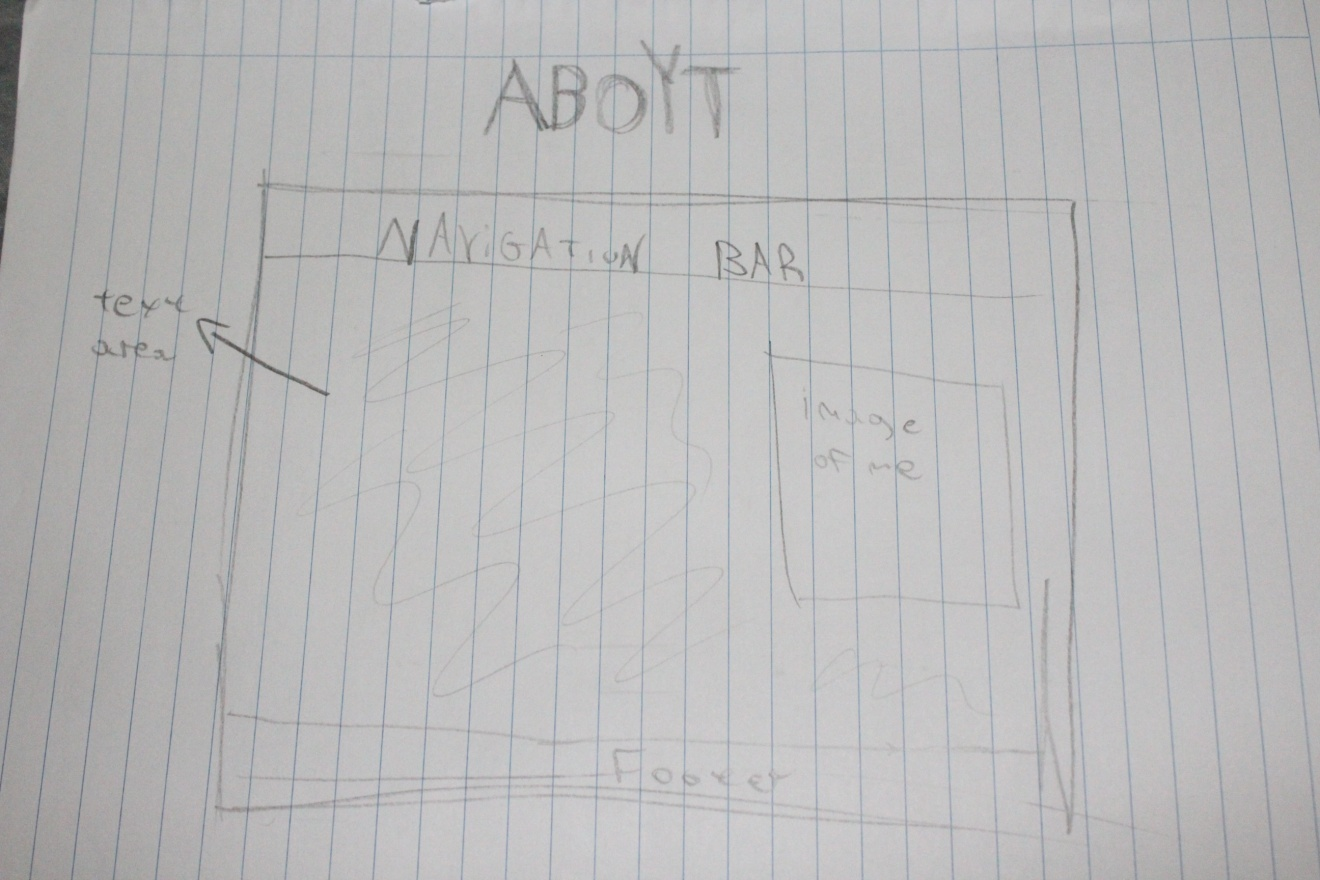 ABOYT
NAViGATiON BAR
text
area
image
of me
Footer